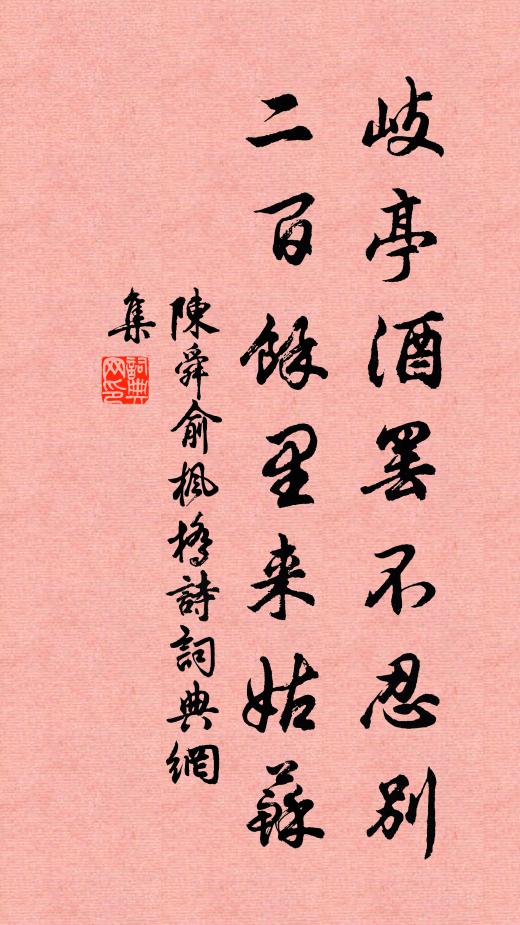 岐亭酒罷不忍別
二百餘里来姑蘇
陳舜俞楓橋詩詞典網
集
詞典網印